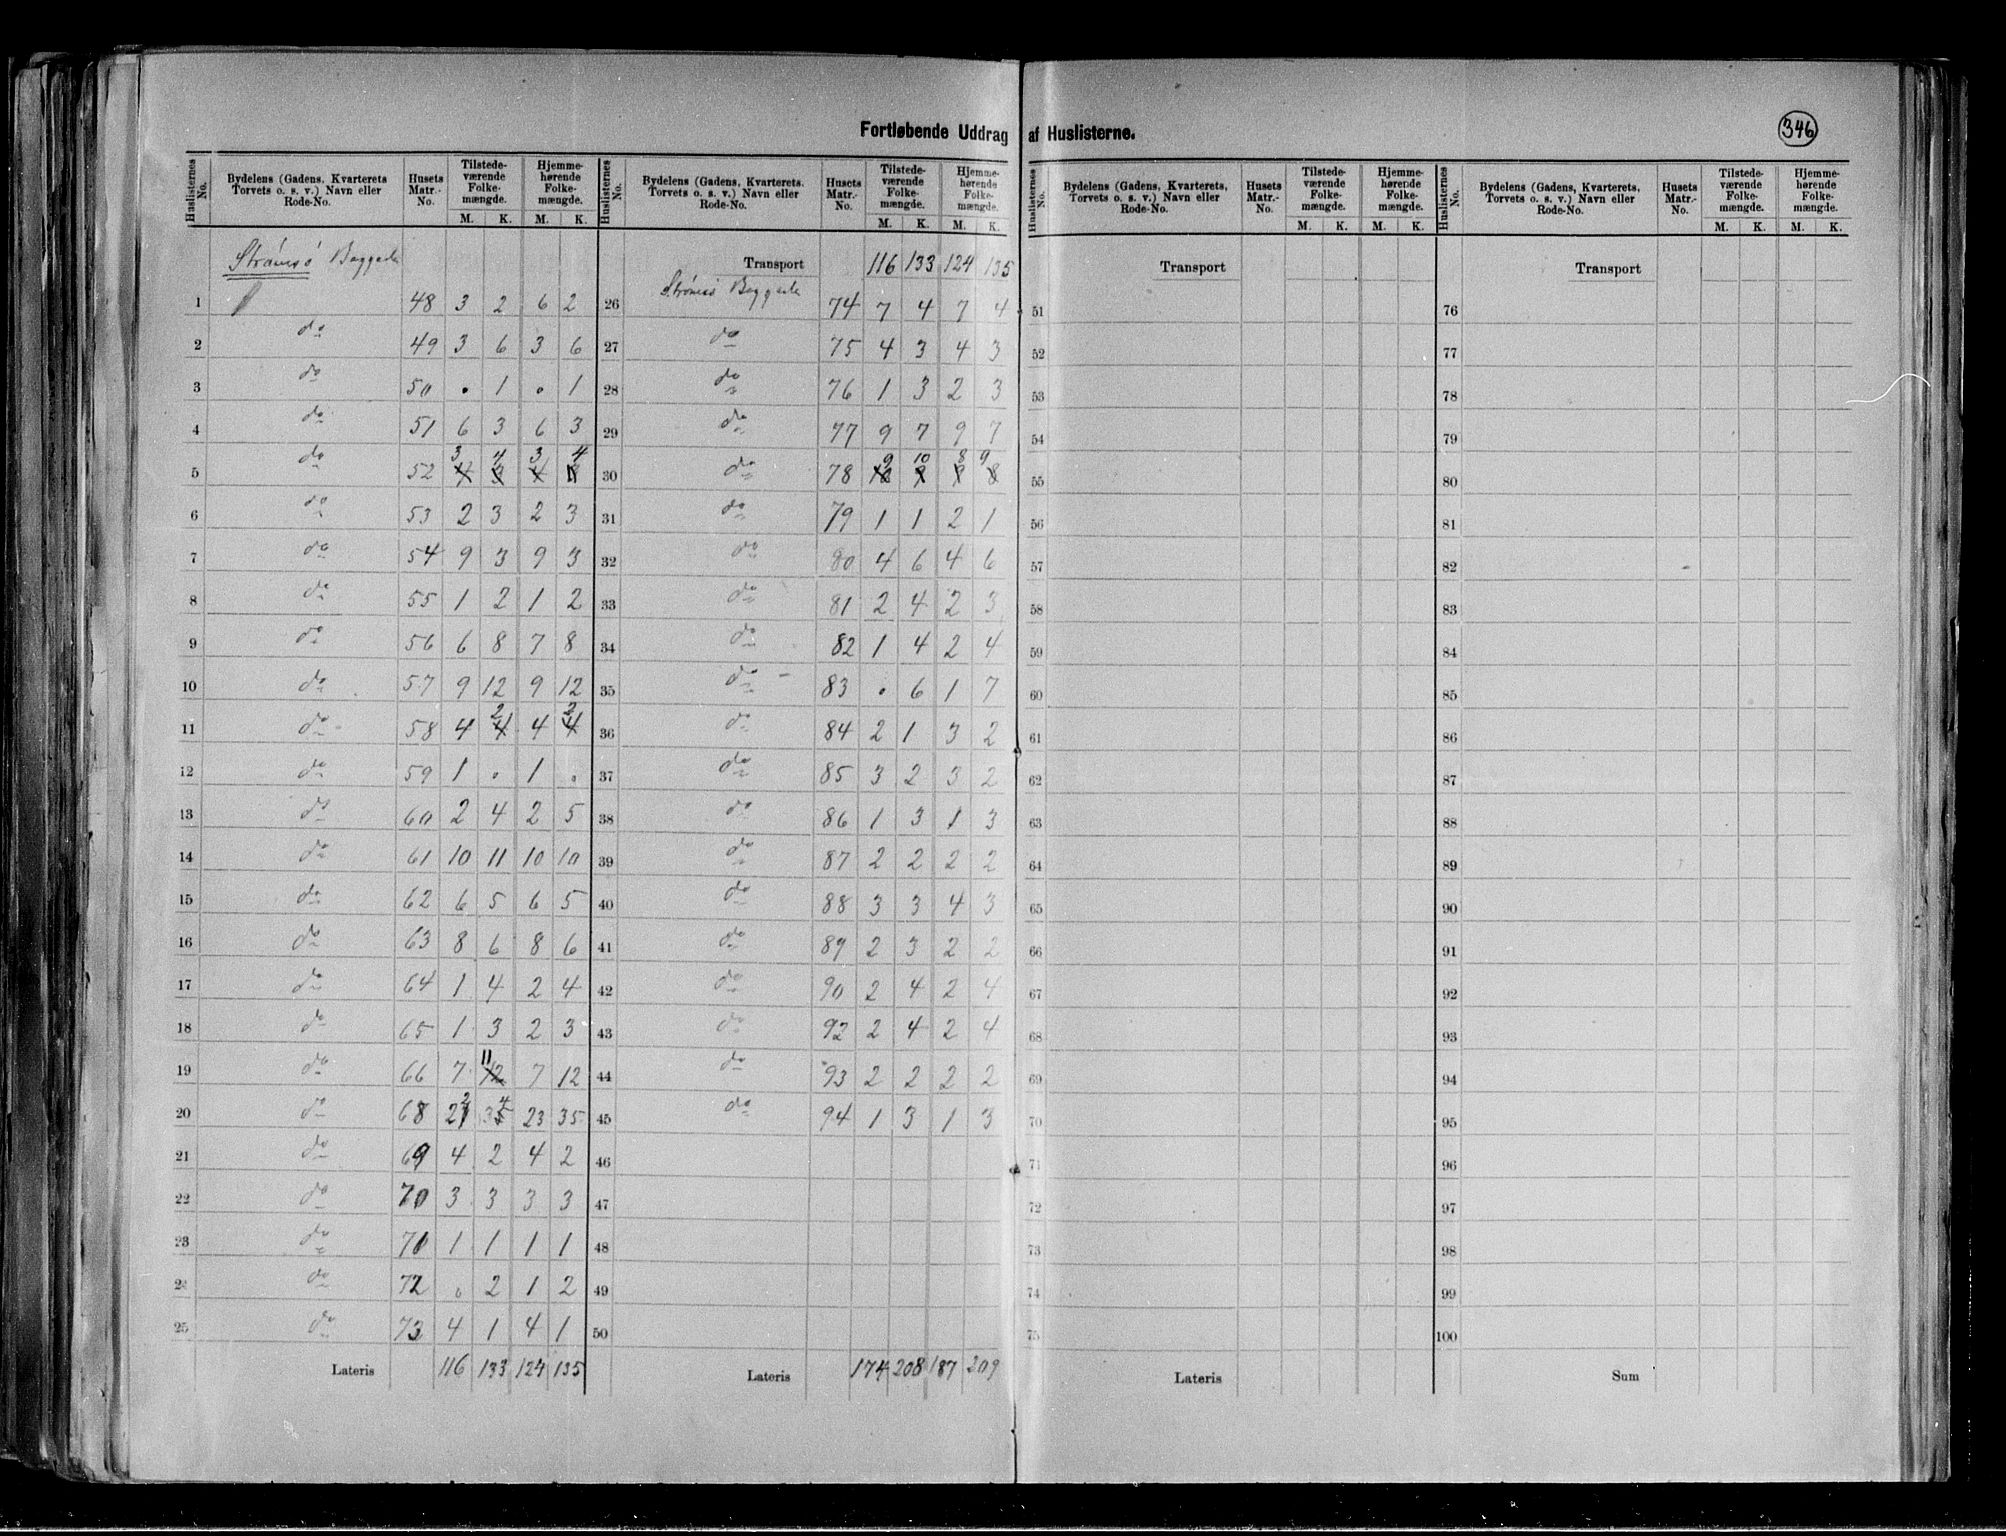 Fortløbende Uddrag af Huslisterne.
346
Huslisternes No. | Bydelens (Gadens, Kvarterets Torvets o. s. v.) Navn eller Rode-No. | Husets Matr.-No. | Tilstede-værende Folke-mængde. M. K. | Hjemme-hørende Folke-mængde. M. K.
Strømsø Baggade
1 48 3 2 6 2
2 do 49 3 6 3 6
3 do 50 . 1 . 1
4 do 51 6 3 6 3
5 do 52 3 4 3 4
6 do 53 2 3 2 3
7 do 54 9 3 9 3
8 do 55 1 2 1 2
9 do 56 6 8 7 8
10 do 57 9 12 9 12
11 do 58 4 2 4 2
12 do 59 1 . 1 .
13 do 60 2 4 2 5
14 do 61 10 11 10 10
15 do 62 6 5 6 5
16 do 63 8 6 8 6
17 do 64 1 4 2 4
18 do 65 1 3 2 3
19 do 66 7 11 7 12
20 do 68 22 34 23 35
21 do 69 4 2 4 2
22 do 70 3 3 3 3
23 do 71 1 1 1 1
24 do 72 . 2 1 2
25 do 73 4 1 4 1
Lateris 116 133 124 135
Huslisternes No. | Bydelens (Gadens, Kvarterets. Torvets o. s. v.) Navn eller Rode-No. | Husets Matr.-No. | Tilstede-værende Folke-mængde. M. K. | Hjemme-hørende Folke-mængde. M. K.
Transport 116 133 124 135
26 Strømsø Baggade 74 7 4 7 4
27 do 75 4 3 4 3
28 do 76 1 3 2 3
29 do 77 9 7 9 7
30 do 78 9 10 8 9
31 do 79 1 1 2 1
32 do 80 4 6 4 6
33 do 81 2 4 2 3
34 do 82 1 4 2 4
35 do 83 . 6 1 7
36 do 84 2 1 3 2
37 do 85 3 2 3 2
38 do 86 1 3 1 3
39 do 87 2 2 2 2
40 do 88 3 3 4 3
41 do 89 2 3 2 2
42 do 90 2 4 2 4
43 do 92 2 4 2 4
44 do 93 2 2 2 2
45 do 94 1 3 1 3
46
47
48
49
50
Lateris 174 208 187 209
Huslisternes No. | Bydelens (Gadens, Kvarterets, Torvets o. s. v.) Navn eller Rode-No. | Husets Matr.-No. | Tilstede-værende Folke-mængde. M. K. | Hjemme-hørende Folke-mængde. M. K.
Transport
51
52
53
54
55
56
57
58
59
60
61
62
63
64
65
66
67
68
69
70
71
72
73
74
75
Lateris
Huslisternes No. | Bydelens (Gadens, Kvarterets, Torvets o. s. v.) Navn eller Rode-No. | Husets Matr.-No. | Tilstede-værende Folke-mængde. M. K. | Hjemme-hørende Folke-mængde. M. K.
Transport
76
77
78
79
80
81
82
83
84
85
86
87
88
89
90
91
92
93
94
95
96
97
98
99
100
Sum